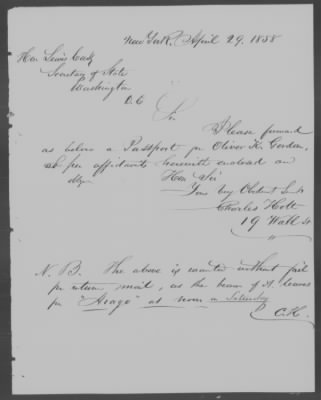 New York, April 29. 1858
Hon Lewis Cass
Secretary of State
Washington
D. C
Sir
Please forward
as below a Passport for Oliver K. Gordon,
as per affidavits herewith enclosed and
Hon Sir
Your very Obdient Svt
Charles Holt
19 Wall St
N. B. The above is wanted without fail
per return mail, as the bearer of it leaves
per "Arago" at noon on Saturday
C. H.